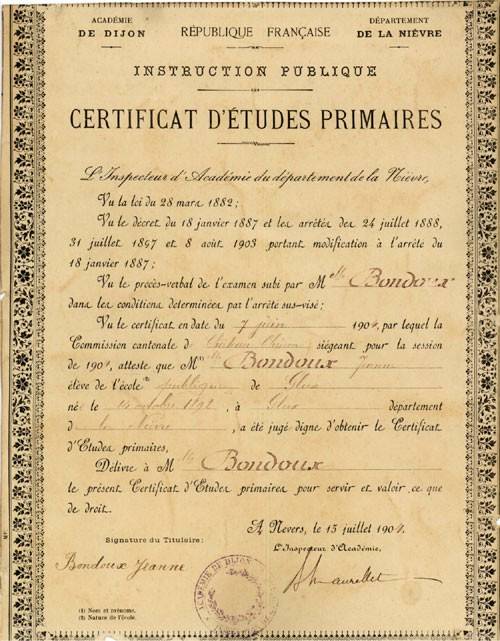 ACADÉMIE
DE DIJON
RÉPUBLIQUE FRANÇAISE
DÉPARTEMENT
DE LA NIÈVRE
INSTRUCTION PUBLIQUE
CERTIFICAT D'ÉTUDES PRIMAIRES
L'Inspecteur d'Académie du département de la Nièvre,
Vu la loi du 28 mars 1882;
Vu le décret du 18 janvier 1887 et les arrêtés des 24 juillet 1888,
31 juillet 1897 et 8 août 1903 portant modification à l'arrêté du
18 janvier 1887;
Vu le procès-verbal de l'examen subi par Melle Bondoux
dans les conditions déterminées par l'arrêté sus-visé;
Vu le certificat en date du 7 juin 1904, par lequel la
Commission cantonale de Château Chinon siégeant pour la session
de 1904, atteste que Mlle Bondoux Jeanne
élève de l'école publique de Glux
né le 14 octobre 1892, à Glux département
d la Nièvre, a été jugé digne d'obtenir le Certificat
d'Etudes primaires,
Délivre à Mlle Bondoux
le présent Certificat d'Etudes primaires pour servir et valoir ce que
de droit.
A Nevers, le 15 juillet 1904.
Signature du Titulaire:
L'Inspecteur d'Académie,
Bondoux Jeanne
ACADÉMIE DE DIJON
(1) Nom et prénoms.
(2) Nature de l'école.